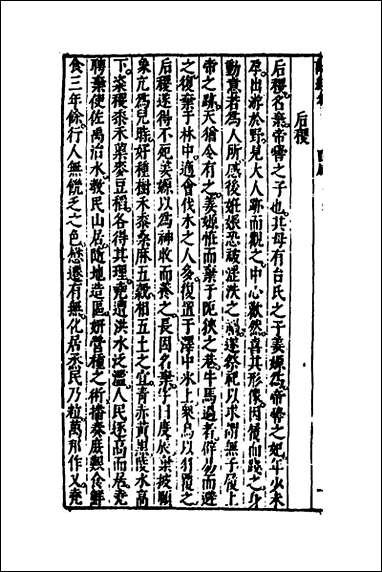 后稷
后稷名棄帝嚳之子也其母有台氏之子姜嫄爲帝嚳之妃年少未
孕出游於野見大人跡而觀之中心歡然喜其形像因履而踐之身
動意若爲人所感後姙娠恐被淫泆之禍遂祭祀以求謂無子履上
帝之跡天猶令有之姜嫄怪而棄于阨狹之巷牛馬過者辟易而避
之復棄于林中適會伐木之人多復置于澤中冰上衆鳥以羽覆之
后稷遂得不死姜嫄以爲神收而養之長因名棄
象兀爲兒時好種樹禾黍桑麻五穀相五土之宜青赤黃黑陵水高
下粢稷黍禾蕖麥豆稻各得其理堯遭洪水泛濫人民逐高而居堯
聘棄使佐禹治水敎民山居隨地造區妍營種之術播奏庶艱食鮮
食三年餘行人無饑乏之色懋遷有無化居烝民乃粒萬邦作乂堯